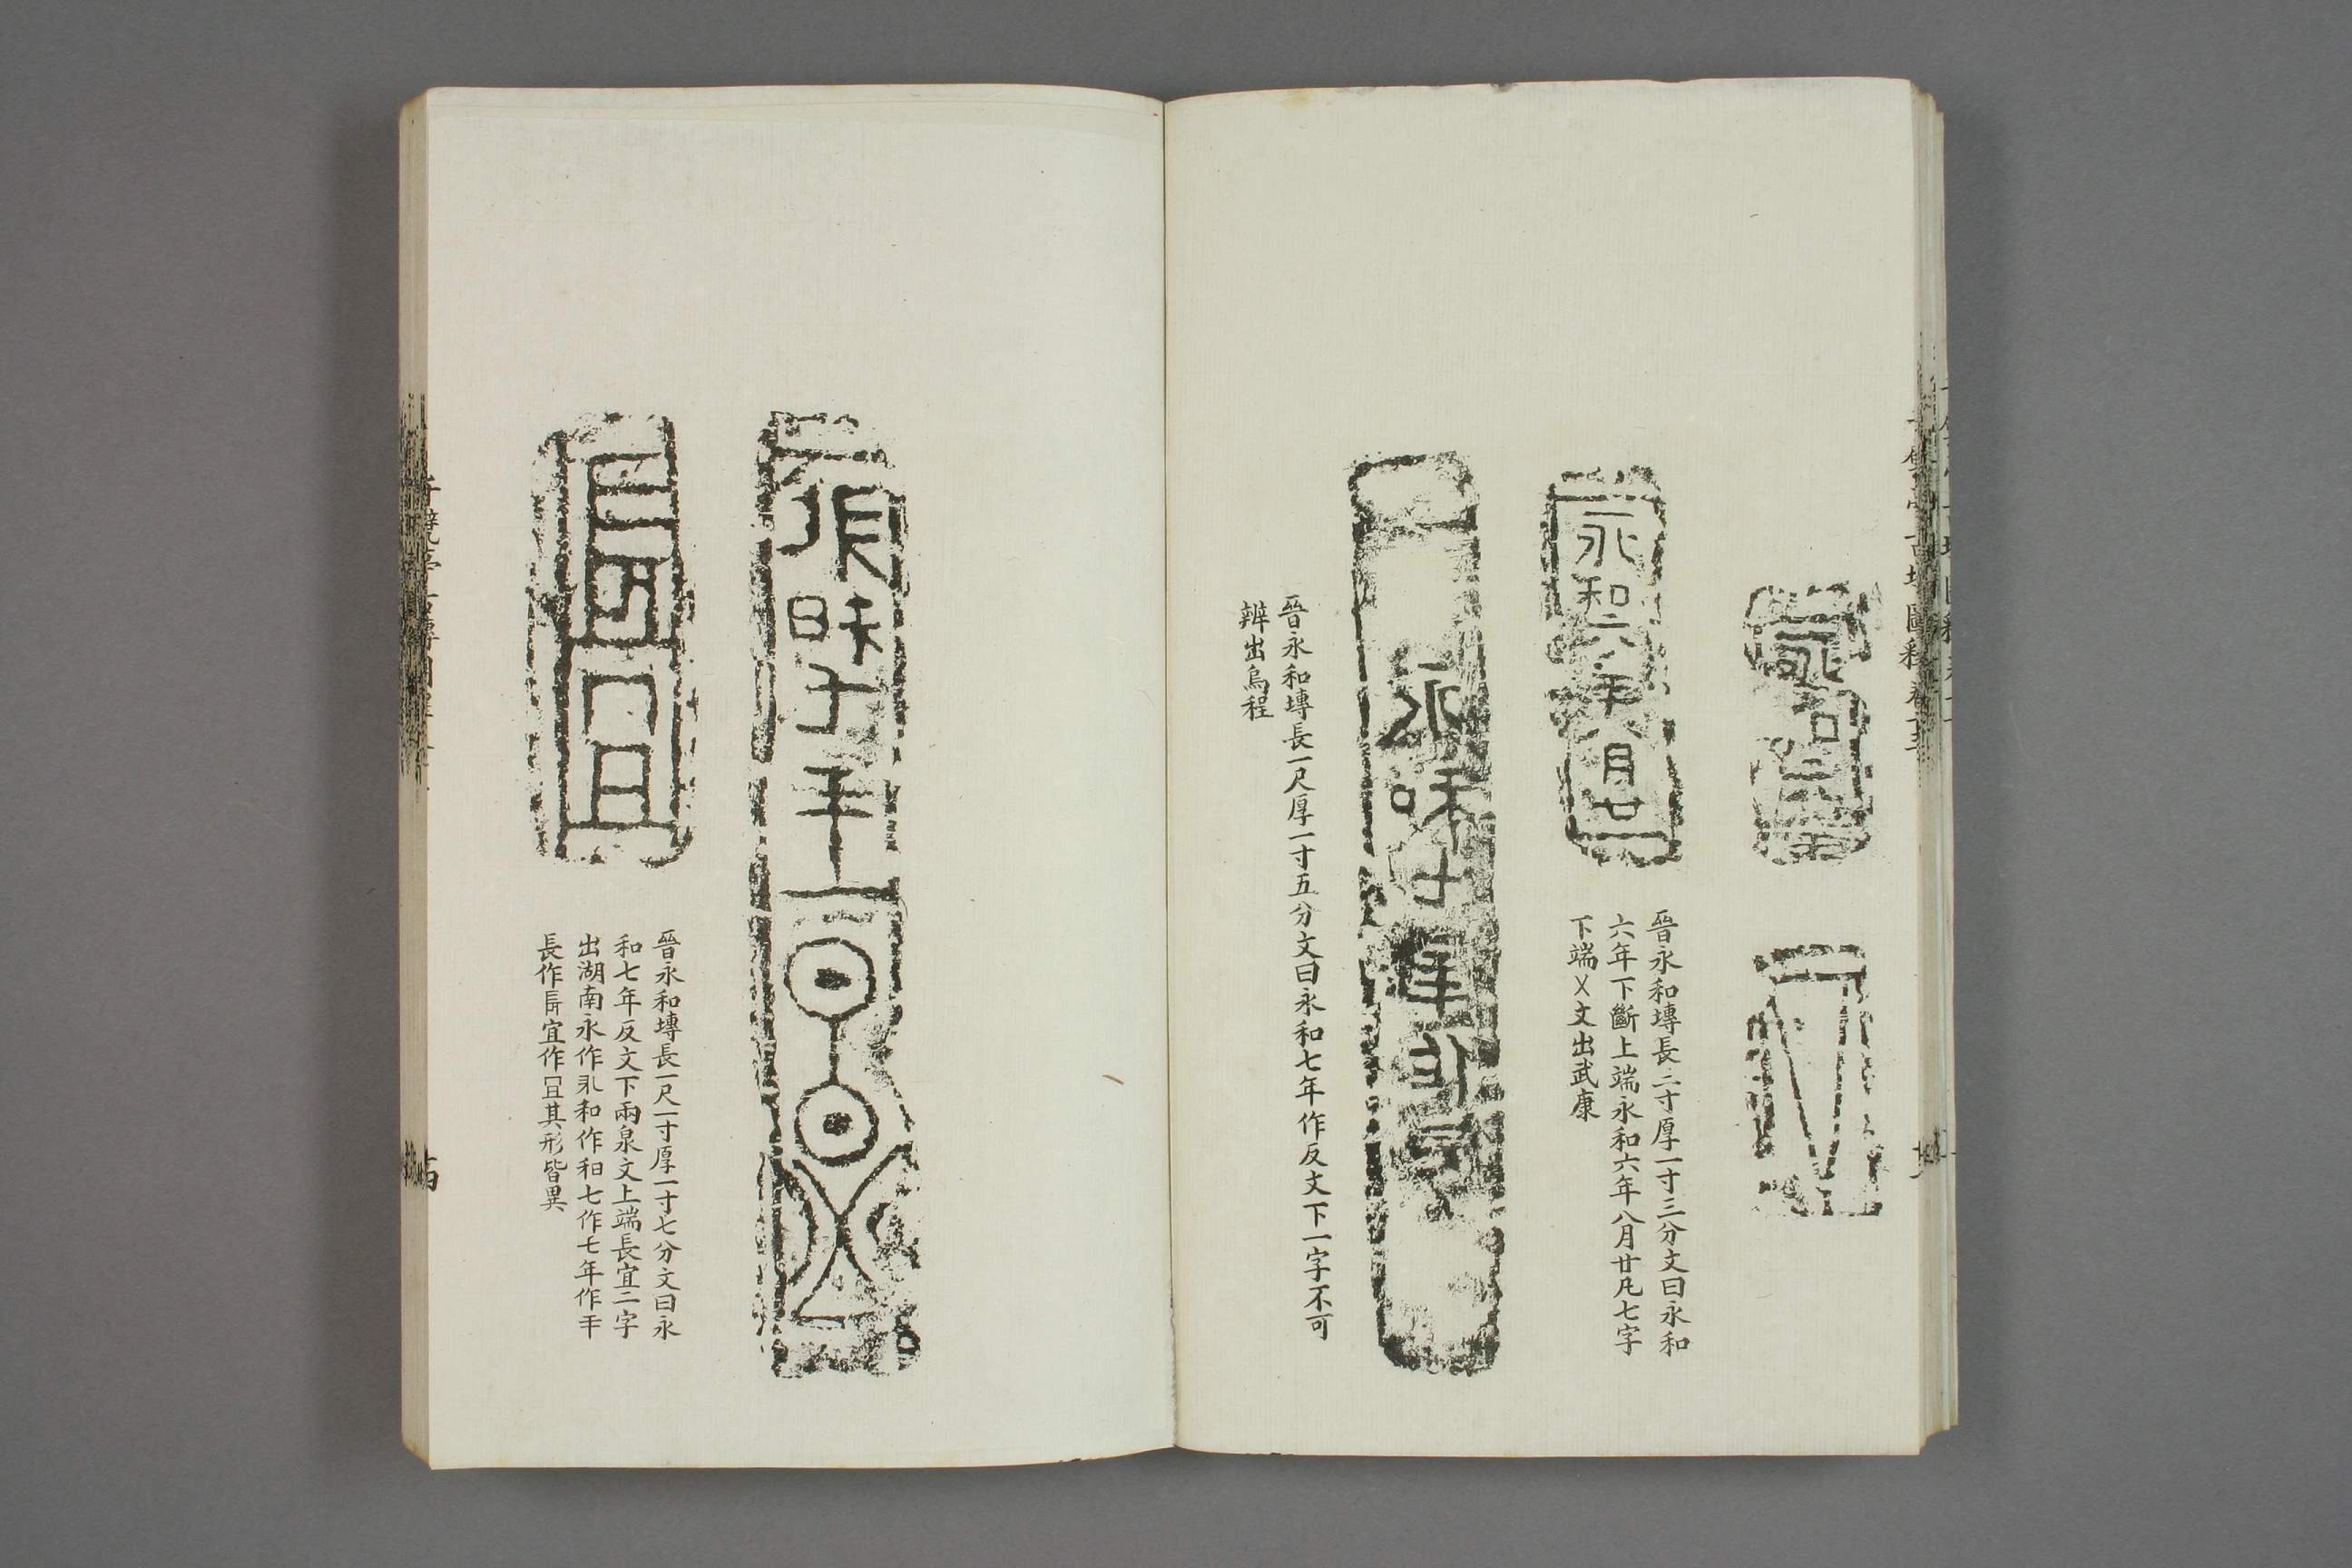 永和六
永和六年八月廿
晉永和塼長二寸厚一寸三分文曰永和
六年下斷上端永和六年八月廿凡七字
下端乂文出武康
永和七年
晉永和塼長一尺厚一寸五分文曰永和七年作反文下一字不可
辨出烏程
永和七年
長宜
晉永和塼長一尺一寸厚一寸七分文曰永
和七年反文下兩泉文上端長宜二字
出湖南永作永和作和七作七年作年
長作長宜作宜其形皆異